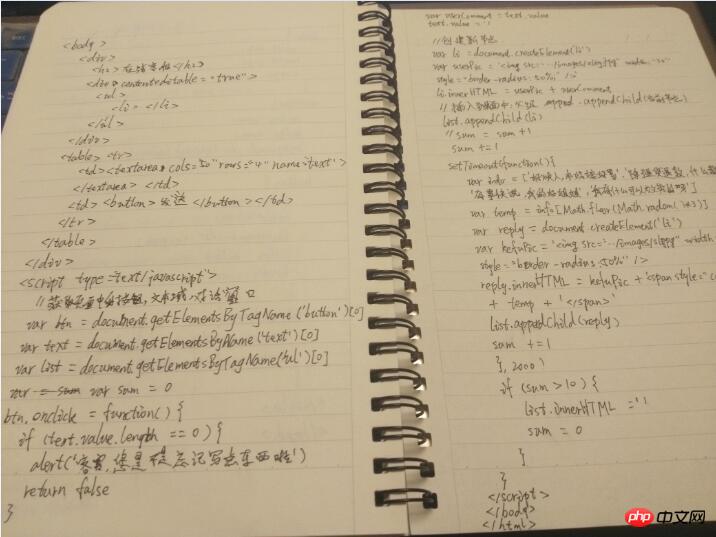 <body>
<div>
<h2> 在线客服 </h2>
<div contenteditable="true">
<ul>
<li> </li>
</ul>
</div>
<table> <tr>
<td> <textarea cols="50" rows="4" name="text">
</textarea> </td>
<td> <button> 发送 </button> </td>
</tr>
</table>
</div>
<script type="text/javascript">
// 获取页面中的按钮,文本域,对话窗口
var btn = document.getElementsByTagName('button')[0]
var text = document.getElementsByName('text')[0]
var list = document.getElementsByTagName('ul')[0]
var sum = 0
btn.onclick = function() {
if (text.value.length == 0) {
alert('客官,您是不是忘记写点东西啦')
return false
}
var userComment = text.value
text.value = ''
// 创建新节点
var li = document.createElement('li')
var userPic = '<img src="../images/
style="border-radius:50%" />'
li.innerHTML = userPic + userComment
append.appendChild
list.appendChild(li)
// sum = sum + 1
sum += 1
setTimeout(function() {
var info = [
var temp = info[Math.floor(Math.radom()*3)]
var reply = document.createElement('li')
var kefuPic = '<img src="../images/ width
style="border-radius:50%" />
reply.innerHTML = kefuPic + '<span style="c
+ temp + '</span>'
list.appendChild(reply)
sum += 1
}, 2000)
if (sum > 10) {
list.innerHTML = ''
sum = 0
}
}
</script>
</body>
</html>
php 中文网